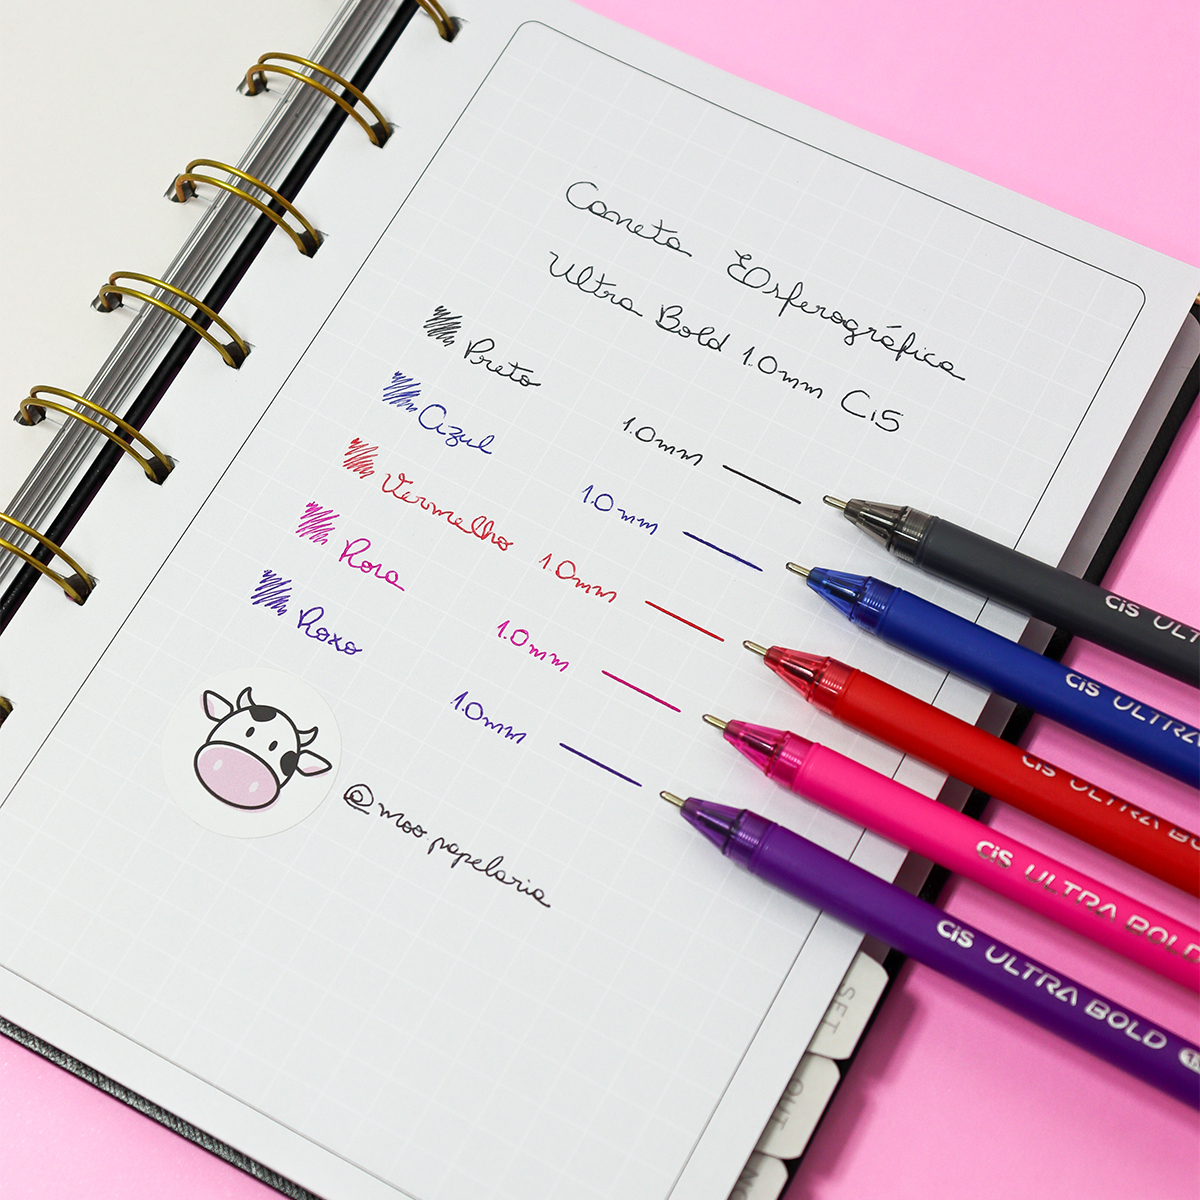 Caneta Esferográfica
Ultra Bold 1.0mm CiS
Preto 1.0mm
Azul 1.0mm
Vermelho 1.0mm
Rosa 1.0mm
Roxo 1.0mm
@moo.papelaria
CiS UL
CiS ULTRA
CiS ULTRA BO
CiS ULTRA BOLD
CiS ULTRA BOLD
SET
OUT